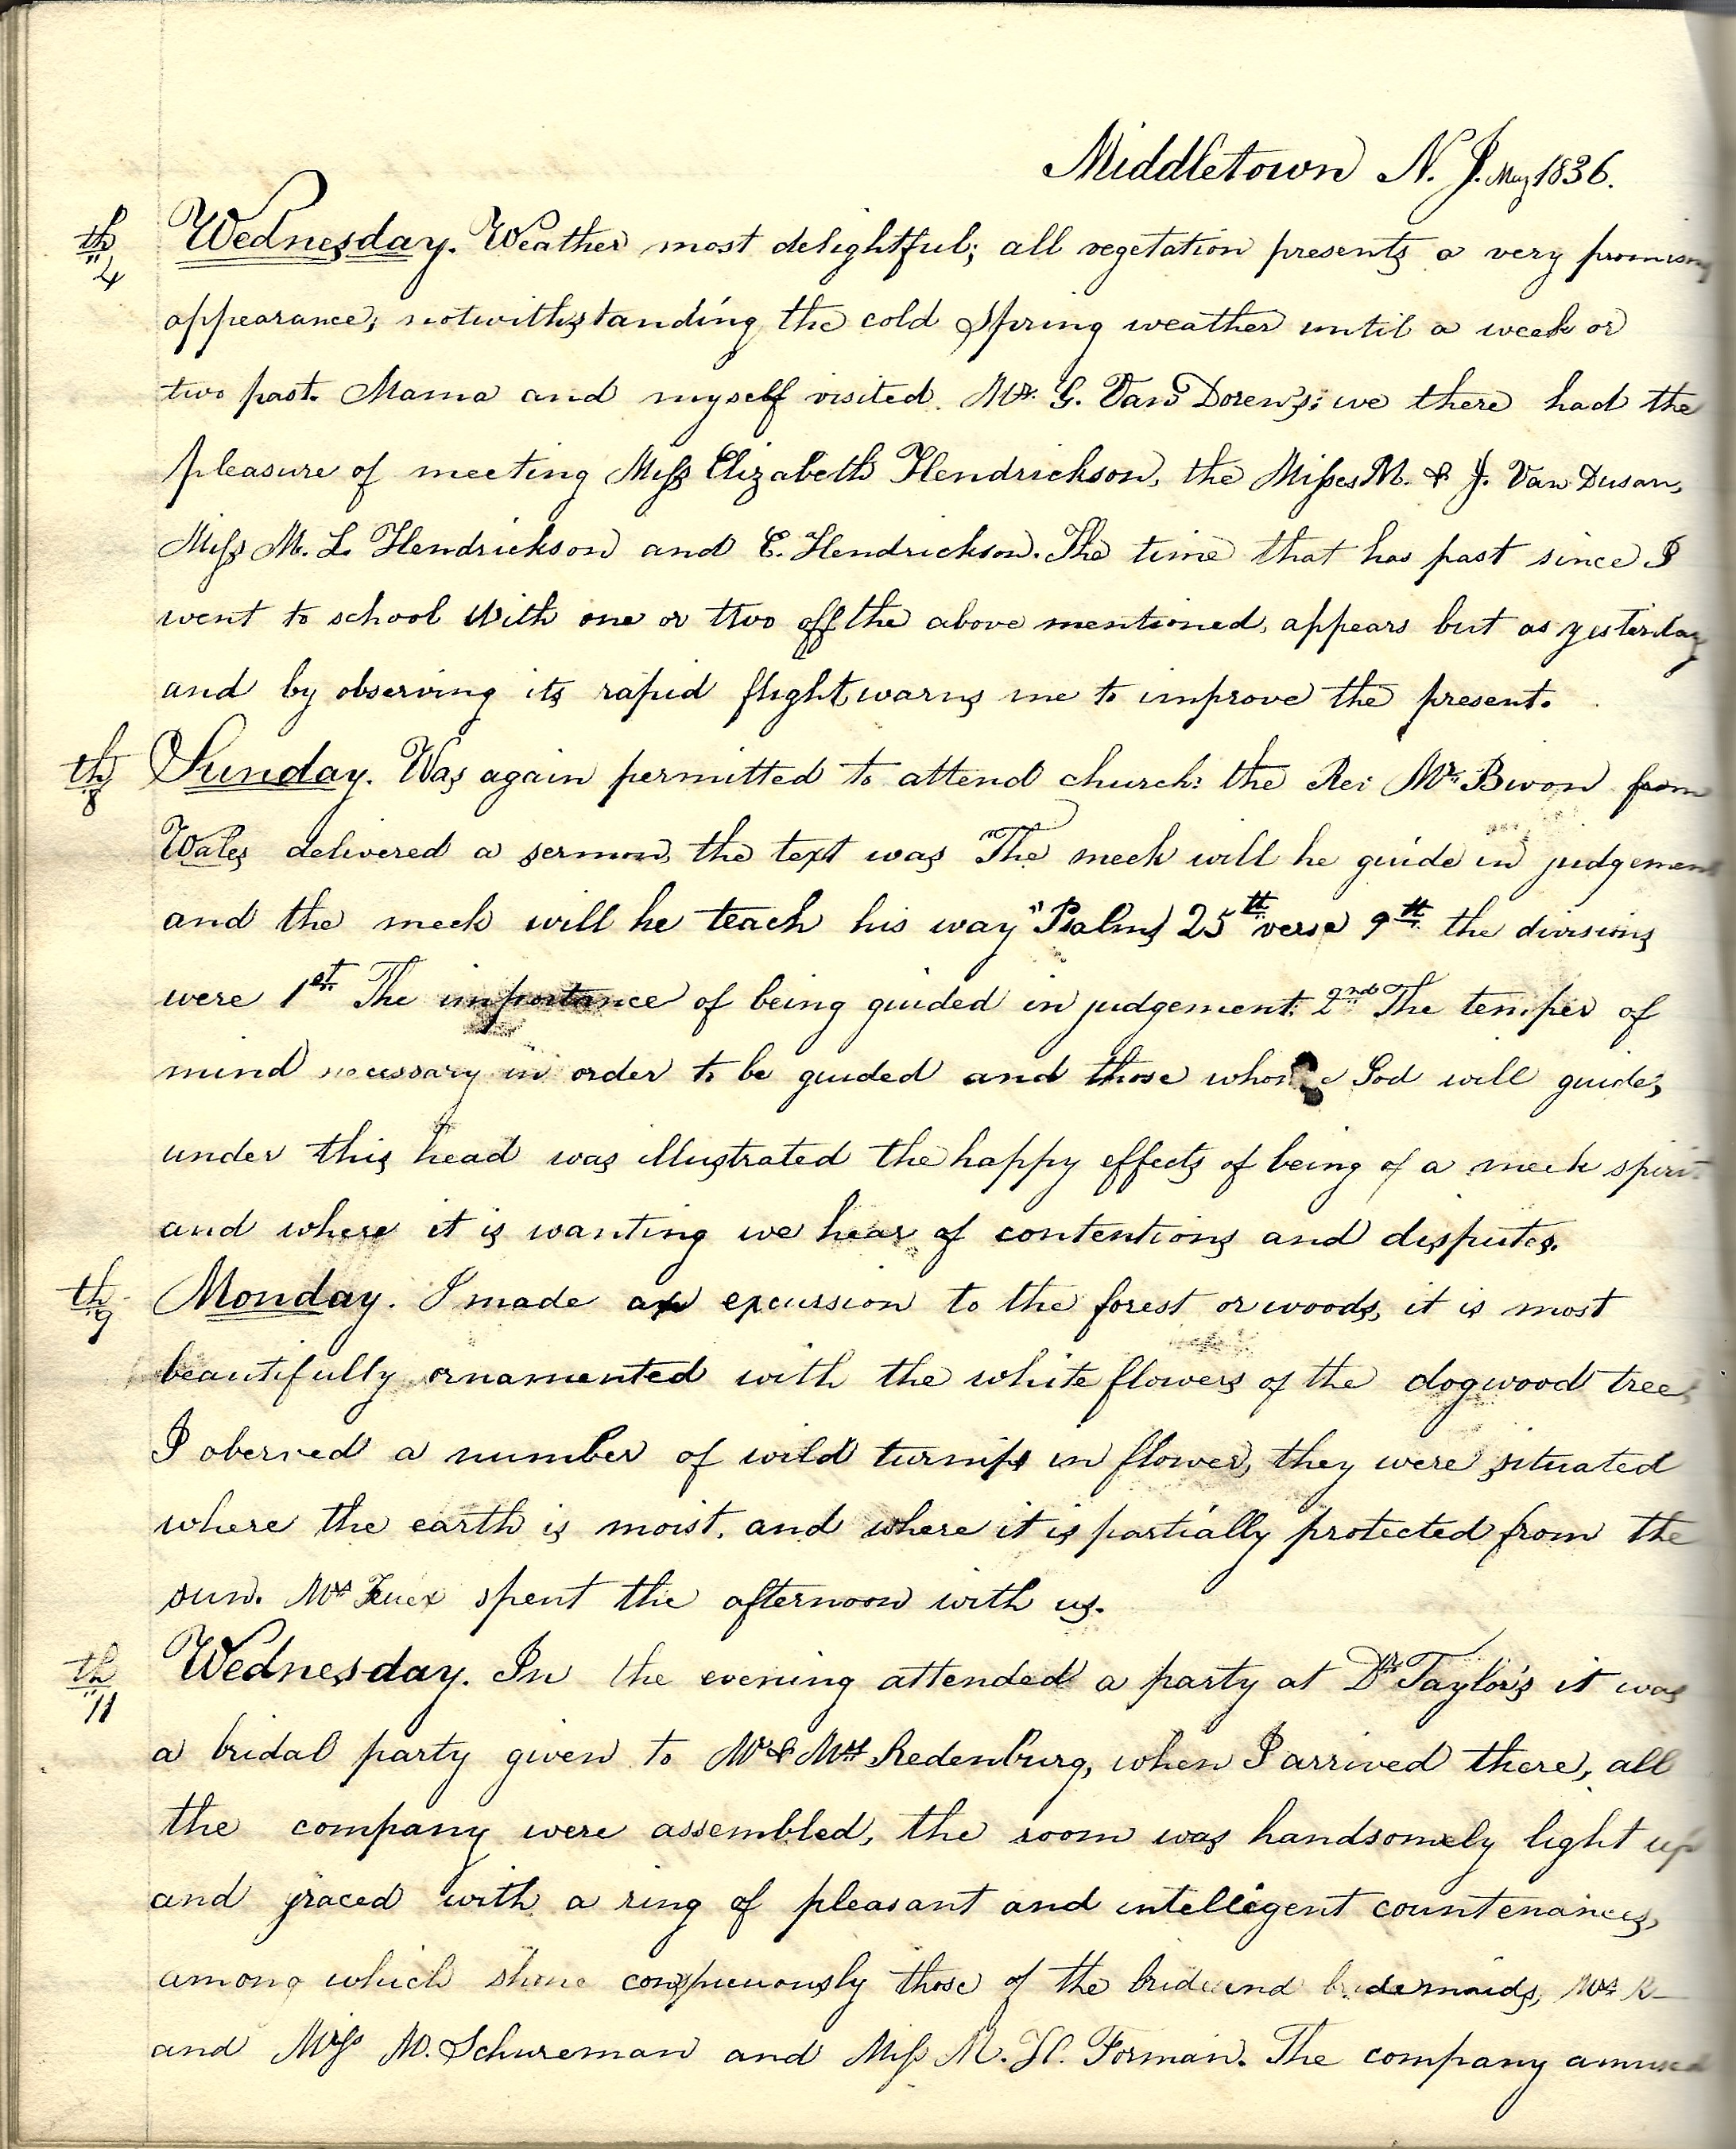 Middletown N. J. May 1836.
th 4 Wednesday. Weather most delightful; all vegetation presents a very promising
appearance; notwithstanding the cold Spring weather until a week or
two past. Mama and myself visited Mr. G. Van Doren's; we there had the
pleasure of meeting Miss Elizabeth Hendrickson, the Misses M. & J. Van Dusan,
Miss M. L. Hendrickson and E. Hendrickson. The time that has past since I
went to school with one or two off the above mentioned, appears but as yesterday
and by observing its rapid flight, warns me to improve the present.
th 8 Sunday. Was again permitted to attend church: the Rev Mr. from
Wales delivered a sermon, the text was "The meek will he guide in judgement
and the meek will he teach his way" Psalms 25th verse 9th the divisions
were 1st The importance of being guided in judgement. 2nd The temper of
mind necessary in order to be guided and those whome God will guide,
under this head was illustrated the happy effects of being of a meek spirit
and where it is wanting we hear of contentions and disputes.
th 9 Monday. I made an excursion to the forest or woods, it is most
beautifully ornamented with the white flowers of the dogwood tree,
I oberved a number of wild turnips in flower, they were situated
where the earth is moist, and where it is partially protected from the
sun. Mrs spent the afternoon with us.
th 11 Wednesday. In the evening attended a party at Dr. Taylor's it was
a bridal party given to Mr & Mrs Redenburg, when I arrived there, all
the company were assembled, the room was handsomely light up
and graced with a ring of pleasant and intelligent countenances,
among which shone conspicuously those of the bride and bridemaids, Mrs R—
and Miss M. Schureman and Miss M. H. Forman. The company amused